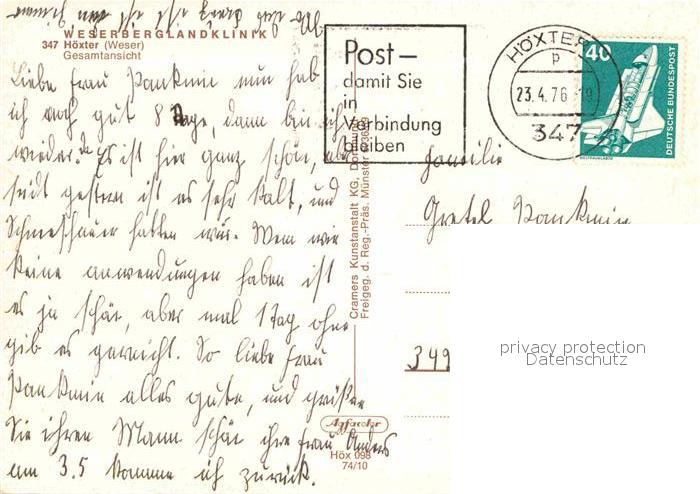 WESERBERGLANDKLINIK
347 Höxter (Weser)
Gesamtansicht
Liebe Frau Panknin nun hab
ich noch gut 8 Tage, dann bin ich
wieder da. Es ist hier ganz schön, aber
seit gestern ist es sehr kalt, und
Schneeschauer hatten wir. Wenn wir
keine anwendungen haben ist
es ja schön, aber mal 1 Tag ohne
gib es garnicht. So liebe Frau
Panknin alles gute, und grüßen
Sie ihren Mann schön ihre Frau Anders
am 3.5 komme ich zurück.
Cramers Kunstanstalt KG, Dortmund
Freigeg. d. Reg.-Präs. Münster
Agfacolor
Höx 098
74/10
Post –
damit Sie
in
Verbindung
bleiben
HÖXTER
p
23.4.76
347
40
DEUTSCHE BUNDESPOST
Familie
Gretel Panknin
349
privacy protection
Datenschutz